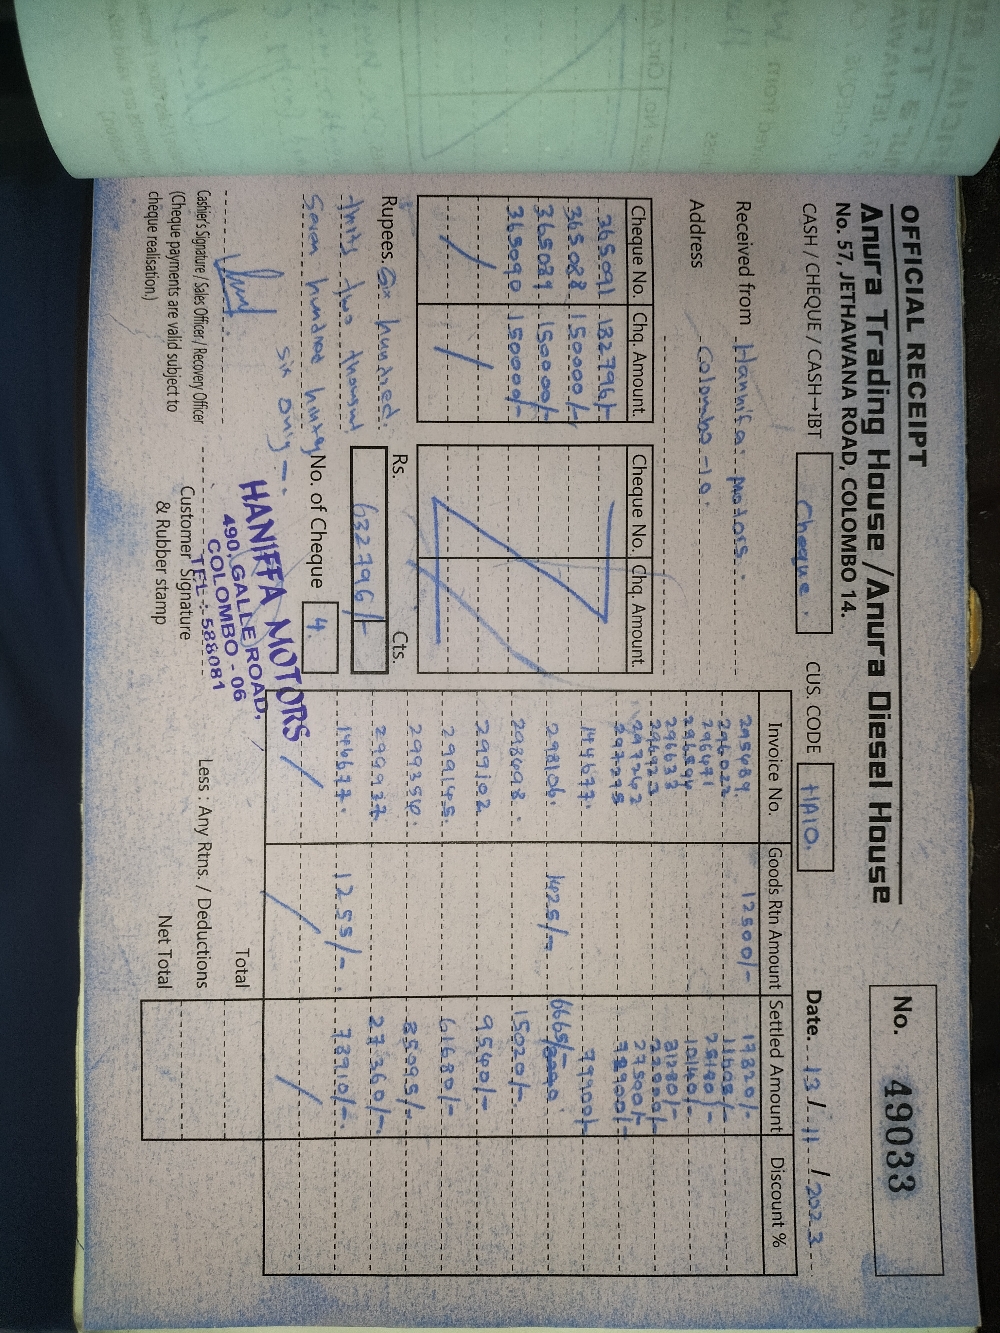 OFFICIAL RECEIPT
No. 49033
Anura Trading House / Anura Diesel House
No. 57, JETHAWANA ROAD, COLOMBO 14.
CASH / CHEQUE / CASH→IBT Cheque. CUS. CODE HA10. Date. 13 / 11 / 2023
Received from Hannifa Motors.
Address Colombo - 10.
Cheque No. Chq. Amount.
365091 132796/-
365088 150000/-
365089 150000/-
365090 150000/-
Cheque No. Chq. Amount.
Rupees. Six hundred.
thirty two thousand
Seven hundred
six only
Rs. Cts.
632796/-
No. of Cheque 4
Invoice No. Goods Rtn Amount Settled Amount Discount %
295489. 12500/- 17320/-
296022
296471
296594
296633 31280/-
296923
297242 27500/-
297295
144677.
298106. 1425/- 6665/-
298498. 15020/-
299102 9540/-
299145. 61680/-
299350.
299937 27360/-
146677. 1255/-. 7390/-.
Total
Less : Any Rtns. / Deductions
Net Total
Cashier's Signature / Sales Officer / Recovery Officer
(Cheque payments are valid subject to
cheque realisation.)
Customer Signature
& Rubber stamp
HANIFFA MOTORS
490, GALLE ROAD,
COLOMBO - 06
TEL :- 588081